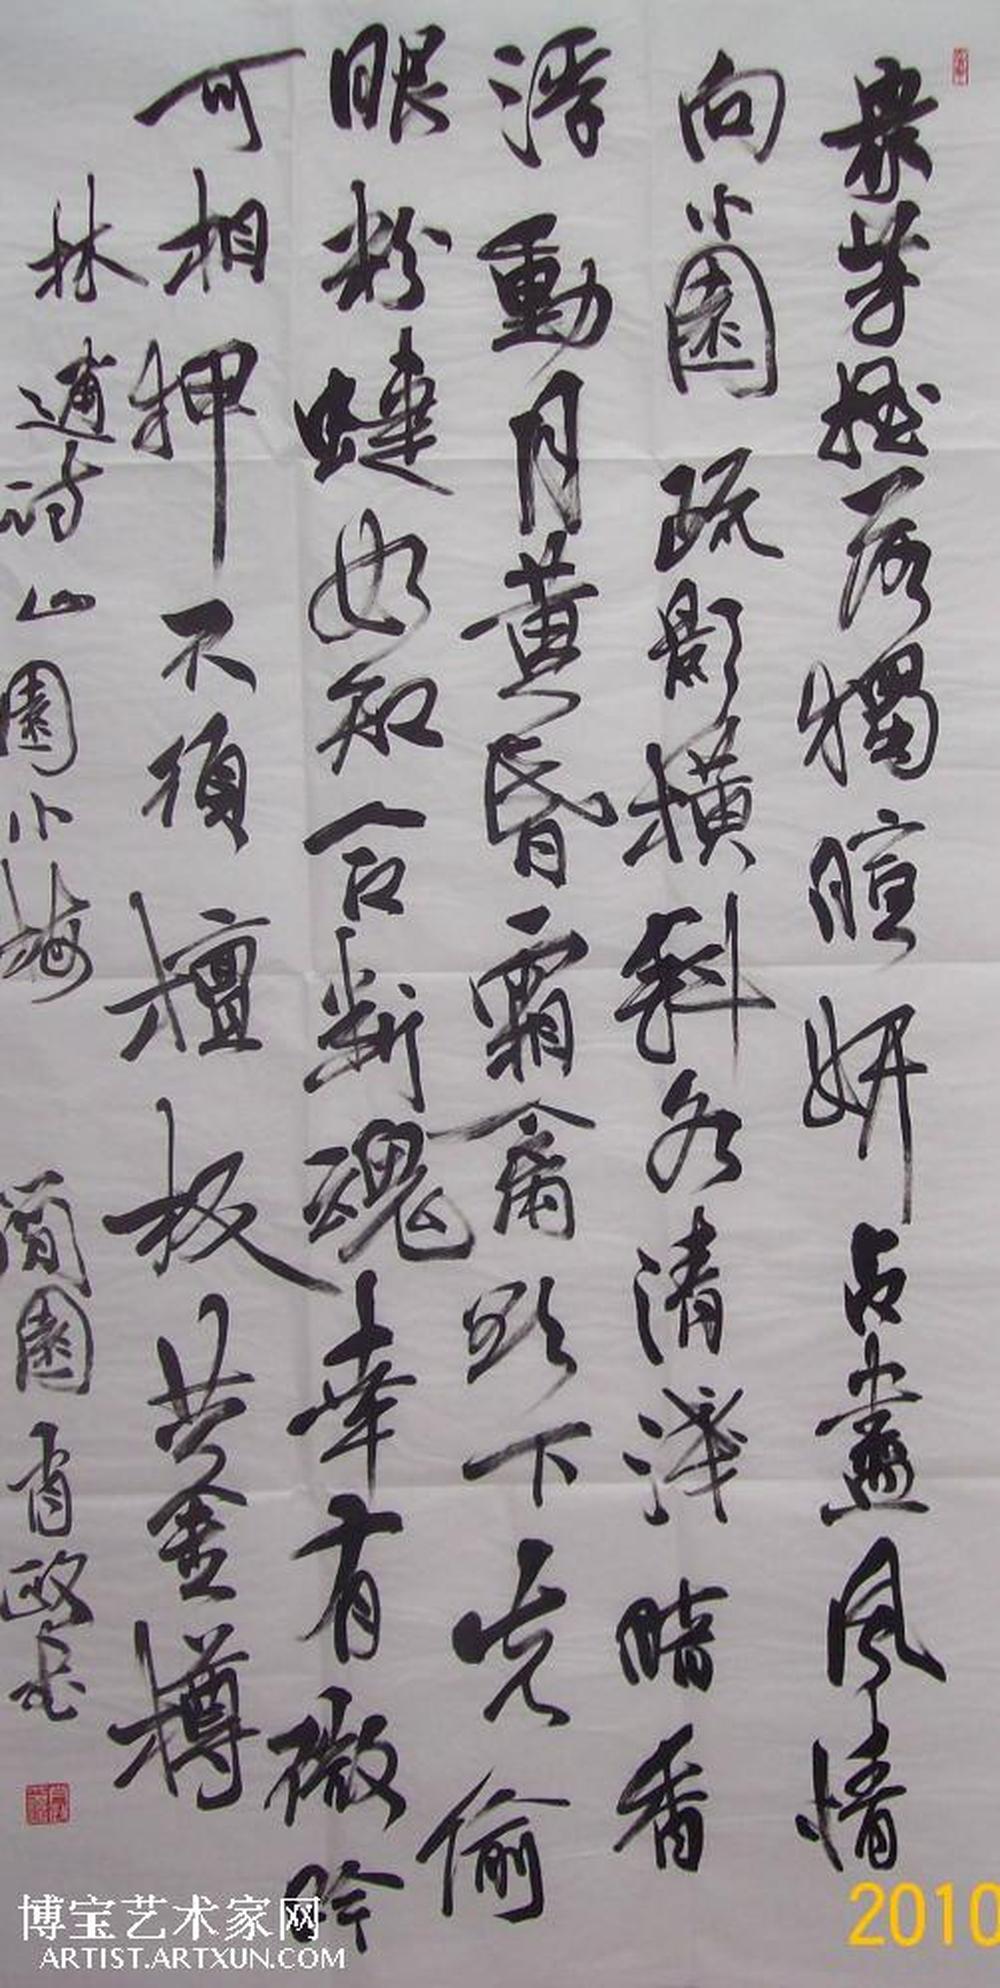 众芳摇落獨暄妍占盡風情
向小園疏影橫斜水清淺暗香
浮動月黄昏霜禽欲下先偷
眼粉蝶如知合断魂幸有微吟
可相狎不須檀板共金樽
林逋诗山園小梅 简園肖政书
博宝艺术家网
ARTIST.ARTXUN.COM
2010